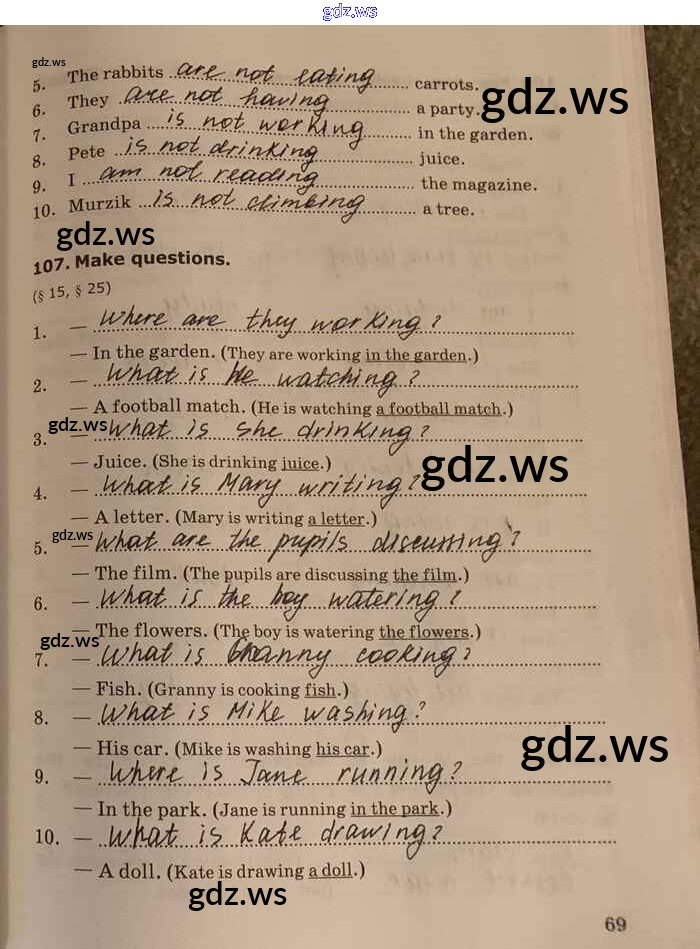 gdz.ws
gdz.ws
5. The rabbits are not eating carrots.
gdz.ws
6. They are not having a party.
7. Grandpa is not working in the garden.
8. Pete is not drinking juice.
9. I am not reading the magazine.
10. Murzik is not climbing a tree.
gdz.ws
107. Make questions.
(§ 15, § 25)
1. — Where are they working?
— In the garden. (They are working in the garden.)
2. — What is he watching?
— A football match. (He is watching a football match.)
gdz.ws
3. — What is she drinking?
— Juice. (She is drinking juice.)
gdz.ws
4. — What is Mary writing?
— A letter. (Mary is writing a letter.)
gdz.ws
5. — What are the pupils discussing?
— The film. (The pupils are discussing the film.)
6. — What is the boy watering?
— The flowers. (The boy is watering the flowers.)
gdz.ws
7. — What is Granny cooking?
— Fish. (Granny is cooking fish.)
8. — What is Mike washing?
— His car. (Mike is washing his car.)
gdz.ws
9. — Where is Jane running?
— In the park. (Jane is running in the park.)
10. — What is Kate drawing?
— A doll. (Kate is drawing a doll.)
gdz.ws
69